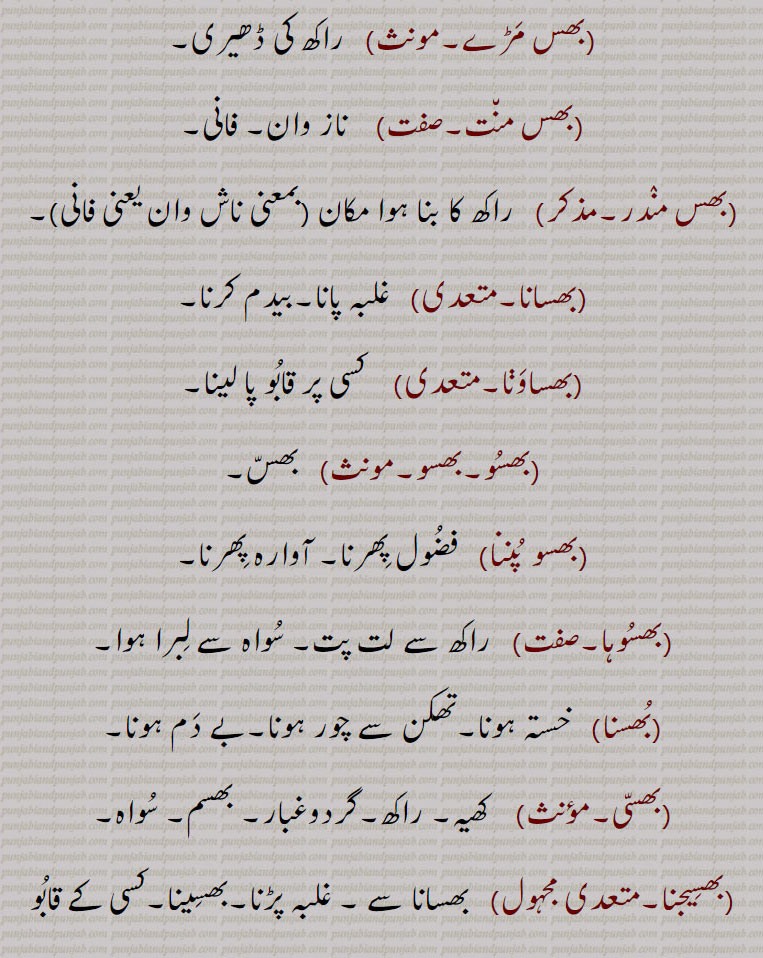 (بھس مَڑے۔مونث) راکھ کی ڈھیری۔
(بھس منّت۔صفت) ناز وان۔ فانی۔
(بھس منْدر۔مذکر) راکھ کا بنا ہوا مکان (بمعنی ناش وان یعنی فانی)۔
(بھسانا۔متعدی) غلبہ پانا۔بیدم کرنا۔
(بھساوَنْا۔متعدی) کسی پر قابُو پا لینا۔
(بھسُو۔بھسو۔مونث) بھسّ۔
(بھسو پُننا) فضُول پِھرنا۔ آوارہ پِھرنا۔
(بھسُوہا۔صفت) راکھ سے لت پت۔ سُواہ سے لِبرا ہوا۔
(بُھسنا) خستہ ہونا۔تھکن سے چور ہونا۔بے دَم ہونا۔
(بھسّی۔مؤنث) کھیہ۔ راکھ۔گردوغبار۔ بھسم۔ سُواہ۔
(بھسِیجنا۔متعدی مجہول) بھسانا سے ۔ غلبہ پڑنا۔بھسِینا۔کسی کے قابُو